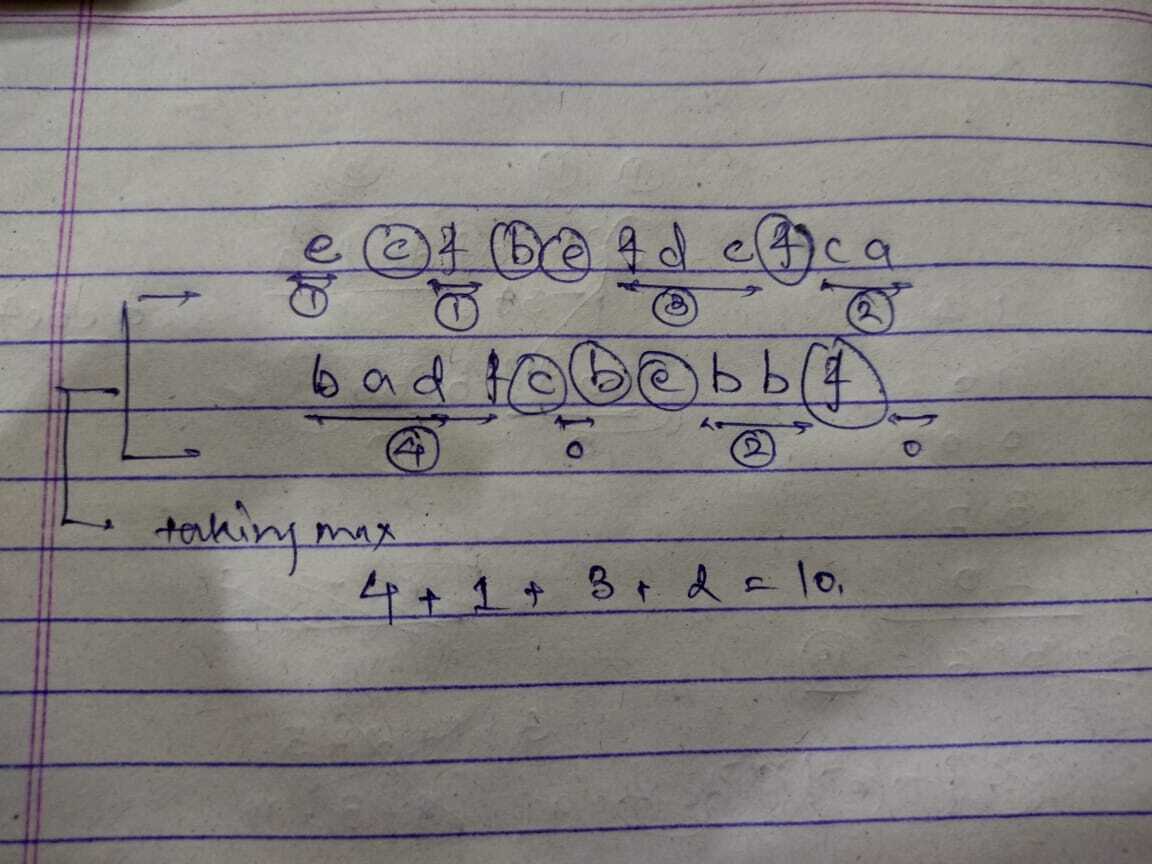 e c f b e f d c f c a
1 1 3 2
b a d f c b e b b f
4 0 2 0
taking max
4 + 1 + 3 + 2 = 10.